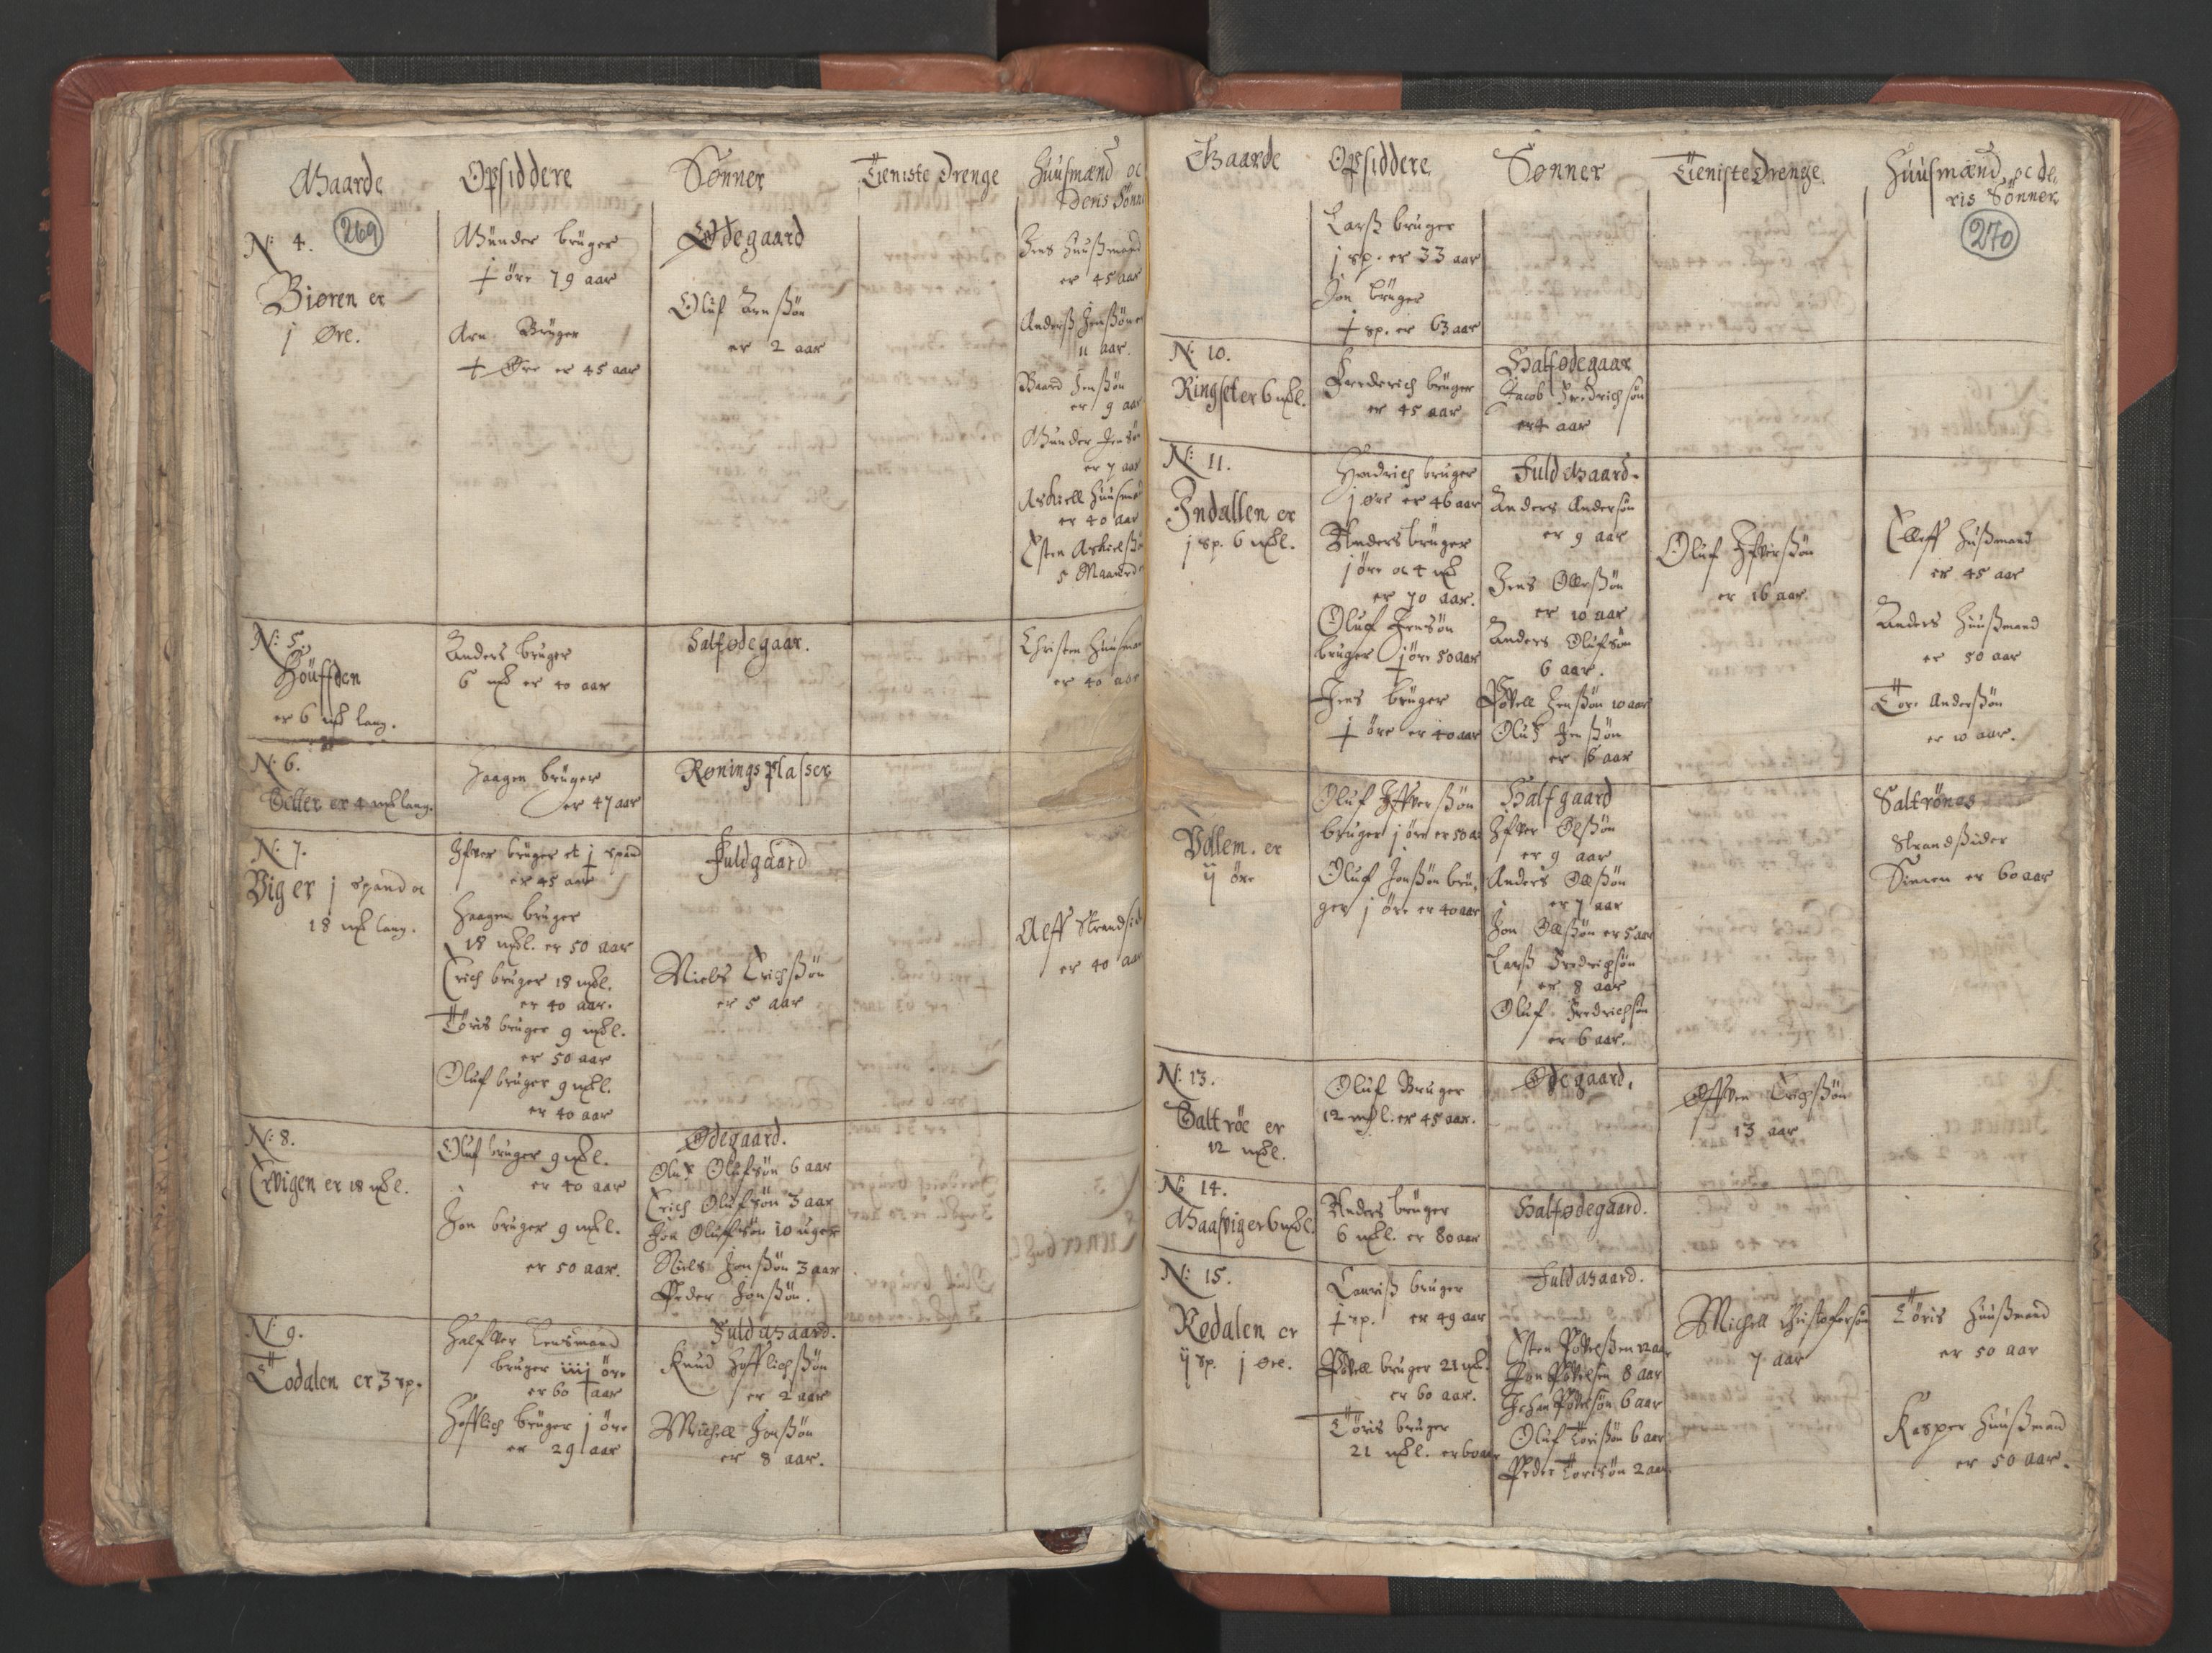 Gaarde
Opsiddere
Sønner
Tieniste Drenge
Huusmænd oc
Deris Sønne
269
N: 4.
Biøren er
j Øre.
Gunder bruger
øre 79 aar
Arn Bruger
Øre er 45 aar
Ødegaard
Oluf Arnßøn
er 2 aar
Jens Huußmand
er 45 aar
Anderß Jenßøn er
11 aar.
Baard Jenßøn
er 9 aar
Gunder Jensøn
er 7 aar
Askiell Huusma
er 40 aar
Esten Askielßøn
5 Maaneder
N: 5.
Høuffden
er 6 mkl lang.
Anders bruger
6 mkl er 40 aar
Halfødegaar.
Christen Huusman
er 40 aar
N: 6.
er 4 mkl lang.
Haagen bruger
er 47 aar
Rønings Plasser
N: 7.
Vig er j spand oc
18 mkl lang.
Ifver bruger et j spand
er 45 aar
Haagen bruger
18 mkl. er 50 aar
Erich bruger 18 mkl.
er 40 aar.
Tøris bruger 9 mkl.
er 50 aar
Oluf bruger 9 mkl.
er 40 aar
Fuldgaard
Niels Erichßøn
er 5 aar
Alff Strandsid
er 40 aar
N: 8.
Ervigen er 18 mkl.
Oluf bruger 9 mkl.
er 40 aar
Jon bruger 9 mkl.
er 50 aar.
Ødegaard.
Oluf Olufsøn 6 aar
Erich Olufsøn 3 aar
Jon Oluffsøn 10 uger
Niels Jonßøn 3 aar
Peder Jonßøn.
N: 9.
Todalen er 3 sp.
Halfver Lensmand
bruger iiij øre
er 60 aar
Hofflich bruger j øre
er 29 aar
Fuldgaard.
Knud Hofflichßøn
er 2 aar
Michell Jonßøn
er 8 aar.
Gaarde
Opsiddere
Sønner
Tieniste Drenge
Huusmænd, oc de,
ris Sønner
270
Larß bruger
j sp. er 33 aar
Jon bruger
sp. er 63 aar
N: 10.
Ringset er 6 mkl.
Frederich bruger
er 45 aar
Halfødegaar
Jacob Fredrichsøn
er 4 aar
N: 11.
Indallen er
j sp. 6 mkl.
Hendrich bruger
j øre er 46 aar
Anders bruger
j øre oc 4 mkl
er 70 aar.
Oluf Jensøn
bruger j øre 50 aar
Jens bruger
øre er 40 aar
Fuld Gaard.
Anders Andersøn
er 9 aar
Jens Olleßøn
er 10 aar
Anders Olufsøn
6 aar.
Povell Jenßøn 10 aar
Oluf Jenßøn
er 6 aar
Oluf Ifverßøn
er 16 aar.
Elleff Hußmand
er 45 aar
Anders Huußmand
er 50 aar
Tore Anderßøn
er 10 aar.
Vdlem. er
ij øre
Oluf Iffverßøn
bruger j øre er 50 aa
Oluf Jonßøn bru,
ger j øre er 40 aar
Halfgaard
Ifver Olßøn
er 9 aar
Anders Olßøn
er 7 aar
Jon Olßøn er 5 aar
Larß Fredrichsøn
er 8 aar
Oluf Fredrichsøn
er 6 aar.
Saltrønes
Strandßider
Simen er 60 aar
N: 13.
Saltrøe er
12 mkl.
Oluf Bruger
12 mkl. er 45 aar.
Ødegaard,
Øffven Erichßøn
13 aar
N: 14.
Gaasvig er 6 mkl.
Anders bruger
6 mkl. er 80 aar
Halfødegaard.
N: 15.
Rødalen er
ij sp. j øre.
Lauriß bruger
sp. er 49 aar
Povell bruger 21 mkl.
er 60 aar.
Tøris bruger
21 mkl. er 60 aar
Fuldgaard.
Esten Povelßen 12 aar
Jon Povelsen 8 aar
Johan Povelsøn 6 aar
Oluf Torisøn 6 aar
Peder Torisøn 2 aar
Michell Christofersøn
7 aar
Tøris Huußmand
er 50 aar
Kasper Huußmand
er 50 aar.